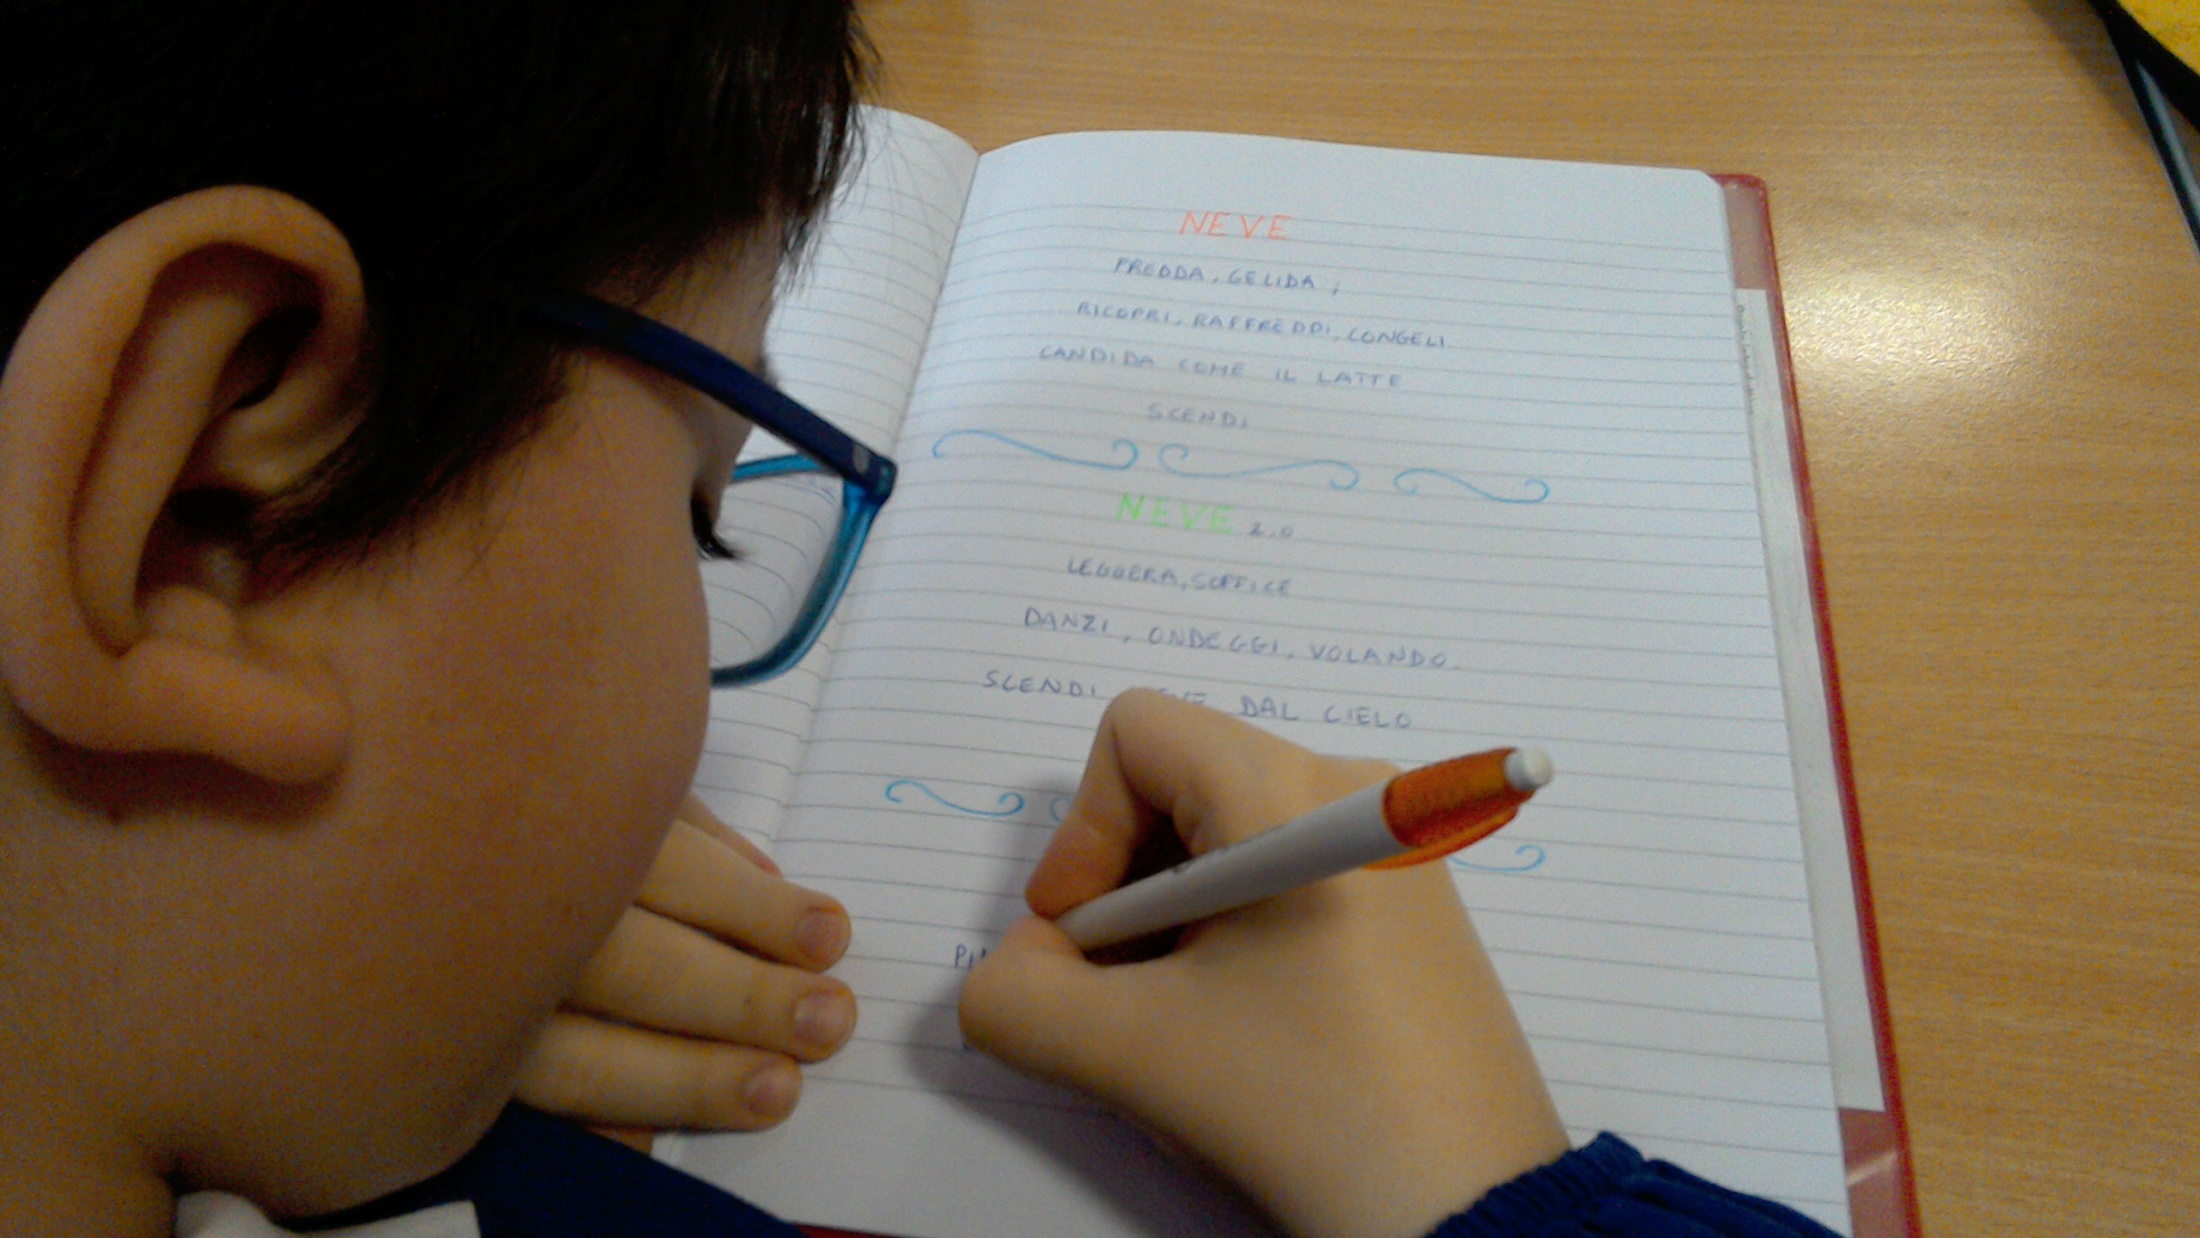 NEVE
FREDDA, GELIDA,
RICOPRI, RAFFREDDI, CONGELI
CANDIDA COME IL LATTE
SCENDI
NEVE 2.0
LEGGERA, SOFFICE
DANZI, ONDEGGI, VOLANDO.
SCENDI DAL CIELO